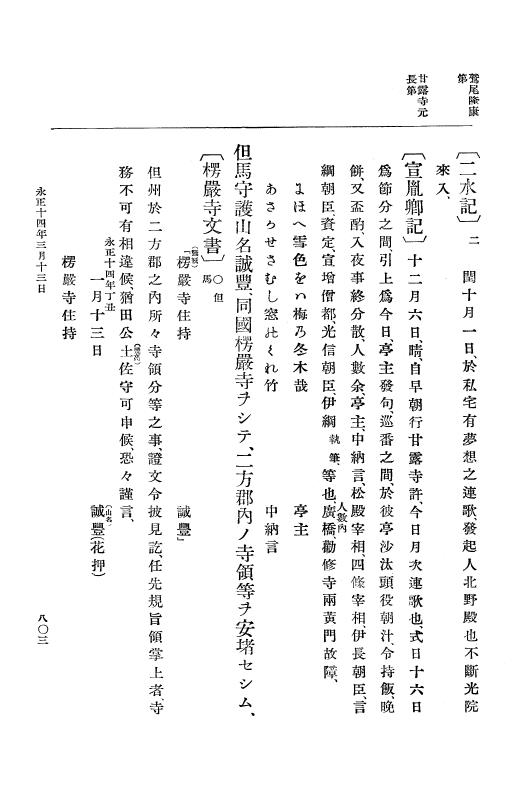 鷲尾隆康
第
甘露寺元
長第
〔二水記〕二 閏十月一日、於私宅有夢想之連歌、發起人北野殿也、不斷光院
來入、
〔宣胤卿記〕十二月六日、晴、自早朝行甘露寺許、今日月次連歌也、式日十六日
爲節分之間、引上爲今日、亭主發句、巡番之間、於彼亭沙汰、頭役朝汁、令持飯、晩
餠、又盃酌、入夜事終分散、人數余、亭主、中納言、松殿宰相、四條宰相、伊長朝臣、言
綱朝臣、資定、宣增僧都、光信朝臣、伊綱執筆、等也、人數內廣橋勸修寺兩黃門故障、
まほへ雪色をハ梅乃冬木哉 亭主
あさらせさむし窓のくれ竹 中納言
但馬守護山名誠豐、同國楞嚴寺ヲシテ、二方郡內ノ寺領等ヲ安堵セシム、
〔楞嚴寺文書〕〇但馬
「楞嚴寺住持 誠豐」
但州於二方郡之內所々寺領分等之事、證文令披見訖、任先規旨領掌上者、寺
務不可有相違候、猶田公土佐守可申候、恐々謹言、
永正十四年丁丑
一月十三日 (山名)誠豐(花押)
楞嚴寺住持
永正十四年三月十三日
八〇三